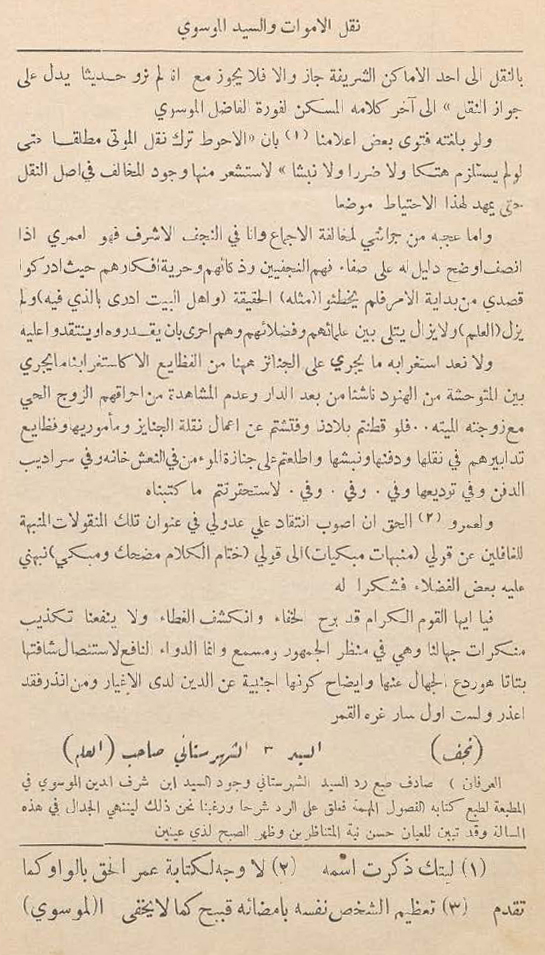 نقل الاموات والسيد الموسوي
بالنقل الى احد الاماكن الشريفة جاز والا فلا يجوز مع انه لم نرو حديثا يدل على
جواز النقل » الى آخر كلامه المسكن لفورة الفاضل الموسوي
ولو بلغته فتوى بعض اعلامنا (١) بان «الاحوط ترك نقل الموتى مطلقا حتى
لو لم يستلزم هتكا ولا ضررا ولا نبشا » لاستشعر منها وجود المخالف في اصل النقل
حتى يمهد لهذا الاحتياط موضعا
واما عجبه من جرائتي لمخالفة الاجماع وانا في النجف الاشرف فهو لعمري اذا
انصف اوضح دليل له على صفاء فهم النجفيين وذكائهم وحرية افكارهم حيث ادركوا
قصدي من بداية الامر فلم يخطئوا (مثله) الحقيقة (واهل البيت ادرى بالذي فيه) ولم
يزل (العلم) ولا يزال يتلى بين علمائهم وفضلائهم وهم احرى بان يقدروه او ينتقدوا عليه
ولا نعد استغرابه ما يجري على الجنائز ههنا من الفظايع الا كاستغرابنا ما يجري
بين المتوحشة من الهنود ناشئا من بعد الدار وعدم المشاهدة من احراقهم الزوج الحي
مع زوجته الميته . . فلو قطنتم بلادنا وفتشتم عن اعمال نقلة الجنايز ومأموريها وفظايع
تدابيرهم في نقلها ودفنها ونبشها واطلعتم على جنازة المؤمن في النعش خانه وفي سراديب
الدفن وفي توديعها وفي . وفي . وفي . لاستحقرتم ما كتبناه
ولعمرو (٢) الحق ان اصوب انتقاد علي عدولي في عنوان تلك المنقولات المنبهة
للغافلين عن قولي (منبهات مبكيات) الى قولي (ختام الكلام مضحك ومبكي) نبهني
عليه بعض الفضلاء فشكرا له
فيا ايها القوم الكرام قد برح الخفاء وانكشف الغطاء ولا ينفعنا تكذيب
منكرات جهالنا وهي في منظر الجمهور ومسمع وانما الدواء النافع لاستئصال شافتها
بتاتا هو ردع الجهال عنها وايضاح كونها اجنبية عن الدين لدى الاغيار ومن انذر فقد
اعذر ولست اول سار غره القمر
(نجف) السيد ٣ الشهرستاني صاحب (العلم)
العرفان ) صادف طبع رد السيد الشهرستاني وجود السيد ابن شرف الدين الموسوي في
المطبعة لطبع كتابه الفصول المهمة فعلق على الرد شرحا ورغبنا نحن ذلك لينتهي الجدال في هذه
المسالة وقد تبين للعيان حسن نية المتناظرين وظهر الصبح لذي عينين
(١) ليتك ذكرت اسمه (٢) لا وجه لكتابة عمر الحق بالواو كما
تقدم (٣) تعظيم الشخص نفسه بامضائه قبيح كما لا يخفى (الموسوي)